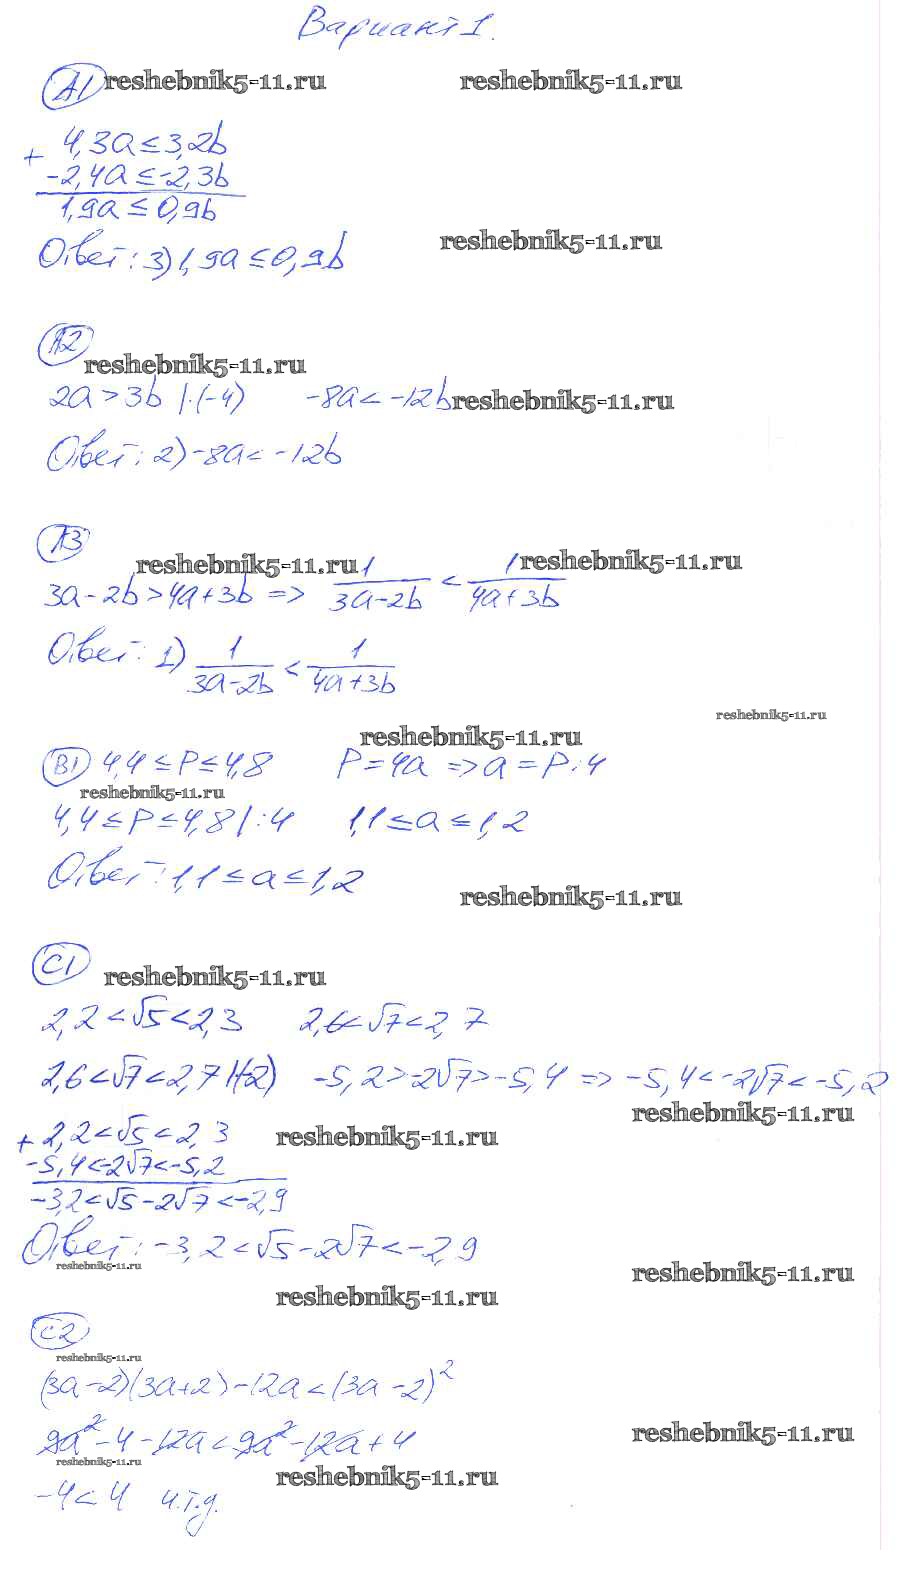 Вариант 1.
А1 reshebnik5-11.ru reshebnik5-11.ru
+ 4,3a ≤ 3,2b
-2,4a ≤ -2,3b
1,9a ≤ 0,9b
reshebnik5-11.ru
Ответ: 3) 1,9a ≤ 0,9b
А2
reshebnik5-11.ru
2a > 3b |·(-4) -8a < -12b reshebnik5-11.ru
Ответ: 2) -8a < -12b
А3
reshebnik5-11.ru reshebnik5-11.ru
3a - 2b > 4a + 3b => 1/(3a-2b) < 1/(4a+3b)
Ответ: 1) 1/(3a-2b) < 1/(4a+3b)
reshebnik5-11.ru
reshebnik5-11.ru
В1 4,4 ≤ P ≤ 4,8 P = 4a => a = P:4
reshebnik5-11.ru
4,4 ≤ P ≤ 4,8 |:4 1,1 ≤ a ≤ 1,2
Ответ: 1,1 ≤ a ≤ 1,2
reshebnik5-11.ru
С1 reshebnik5-11.ru
2,2 < √5 < 2,3 2,6 < √7 < 2,7
2,6 < √7 < 2,7 |(-2) -5,2 > -2√7 > -5,4 => -5,4 < -2√7 < -5,2
reshebnik5-11.ru
+ 2,2 < √5 < 2,3 reshebnik5-11.ru
-5,4 < -2√7 < -5,2
-3,2 < √5 - 2√7 < -2,9
Ответ: -3,2 < √5 - 2√7 < -2,9
reshebnik5-11.ru
reshebnik5-11.ru
reshebnik5-11.ru
С2
reshebnik5-11.ru
(3a-2)(3a+2) - 12a < (3a-2)²
9a² - 4 - 12a < 9a² - 12a + 4
reshebnik5-11.ru
reshebnik5-11.ru
reshebnik5-11.ru
-4 < 4 ч.т.д.